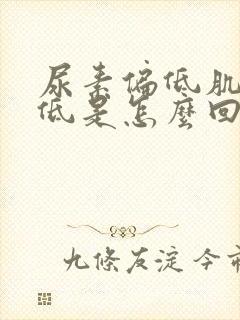 尿素偏低肌
低是怎麼回
九條友淀今市